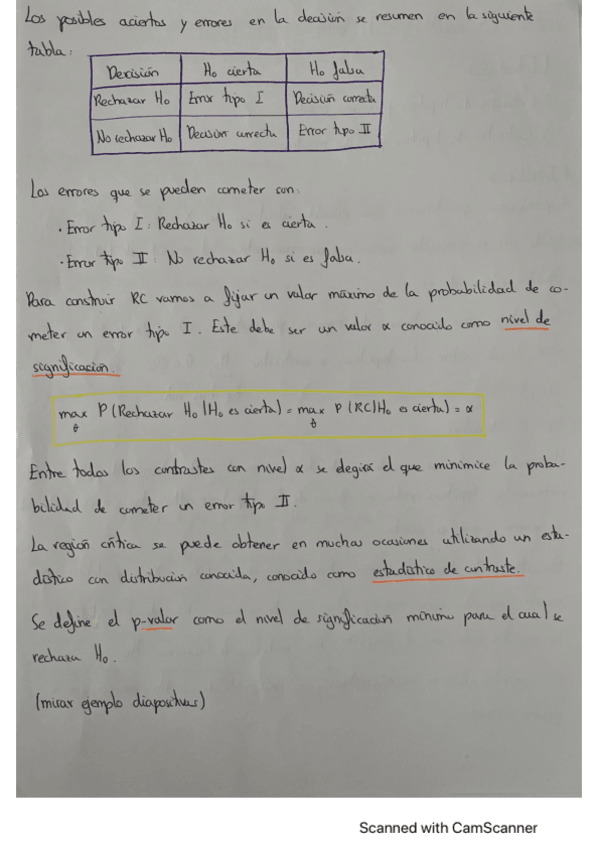 Los posibles aciertos y errores en la decisión se resumen en la siguiente
tabla:
Decisión H₀ cierta H₀ falsa
Rechazar H₀ Error tipo I Decisión correcta
No rechazar H₀ Decisión correcta Error tipo II
Los errores que se pueden cometer son:
· Error tipo I: Rechazar H₀ si es cierta.
· Error tipo II: No rechazar H₀ si es falsa.
Para construir RC vamos a fijar un valor máximo de la probabilidad de co-
meter un error tipo I. Este debe ser un valor α conocido como nivel de
significación.
max P(Rechazar H₀|H₀ es cierta) = max P(RC|H₀ es cierta) = α
θ θ
Entre todos los contrastes con nivel α se elegirá el que minimice la proba-
bilidad de cometer un error tipo II.
La región crítica se puede obtener en muchas ocasiones utilizando un esta-
dístico con distribución conocida, conocido como estadístico de contraste.
Se define el p-valor como el nivel de significación mínimo para el cual se
rechaza H₀.
(mirar ejemplo diapositivas)
Scanned with CamScanner